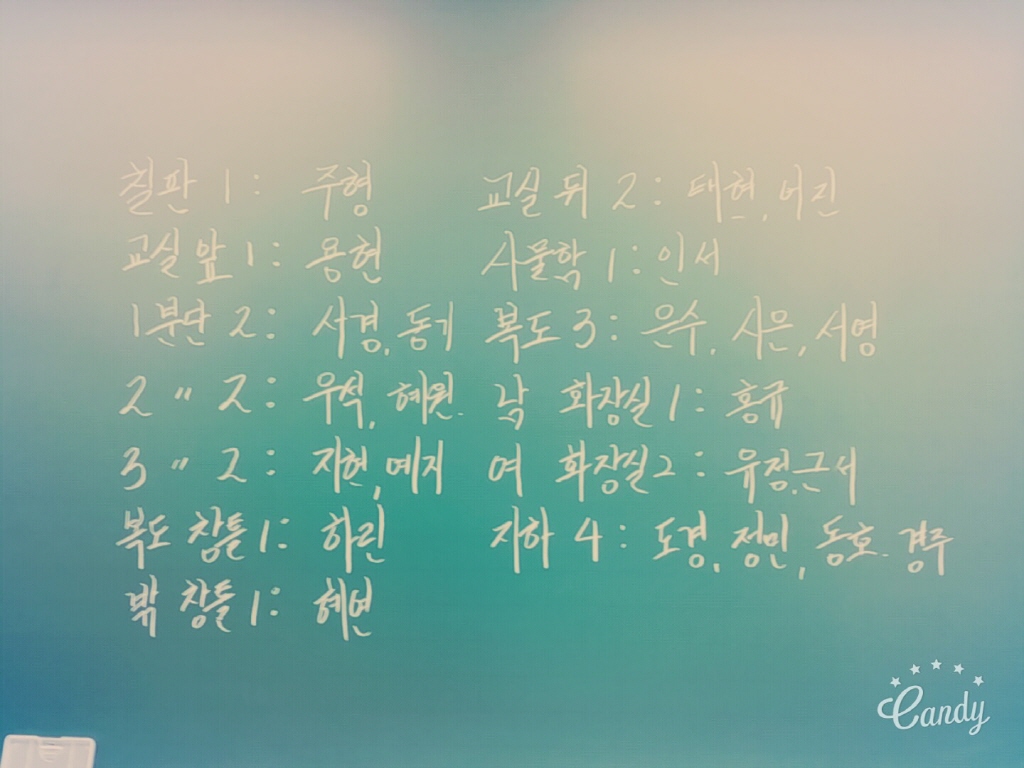 칠판 1 : 주형
교실 앞 1 : 용현
1분단 2 : 서경, 동기
2 〃 2 : 우석, 혜원.
3 〃 2 : 지현, 예지
복도 창틀 1 : 하린
밖 창틀 1 : 혜연
교실 뒤 2 : 태현, 어진
사물함 1 : 인서
복도 3 : 은수, 시은, 서영
남 화장실 1 : 홍규
여 화장실 2 : 유정, 근서
지하 4 : 도경, 정민, 동호. 경주
Candy